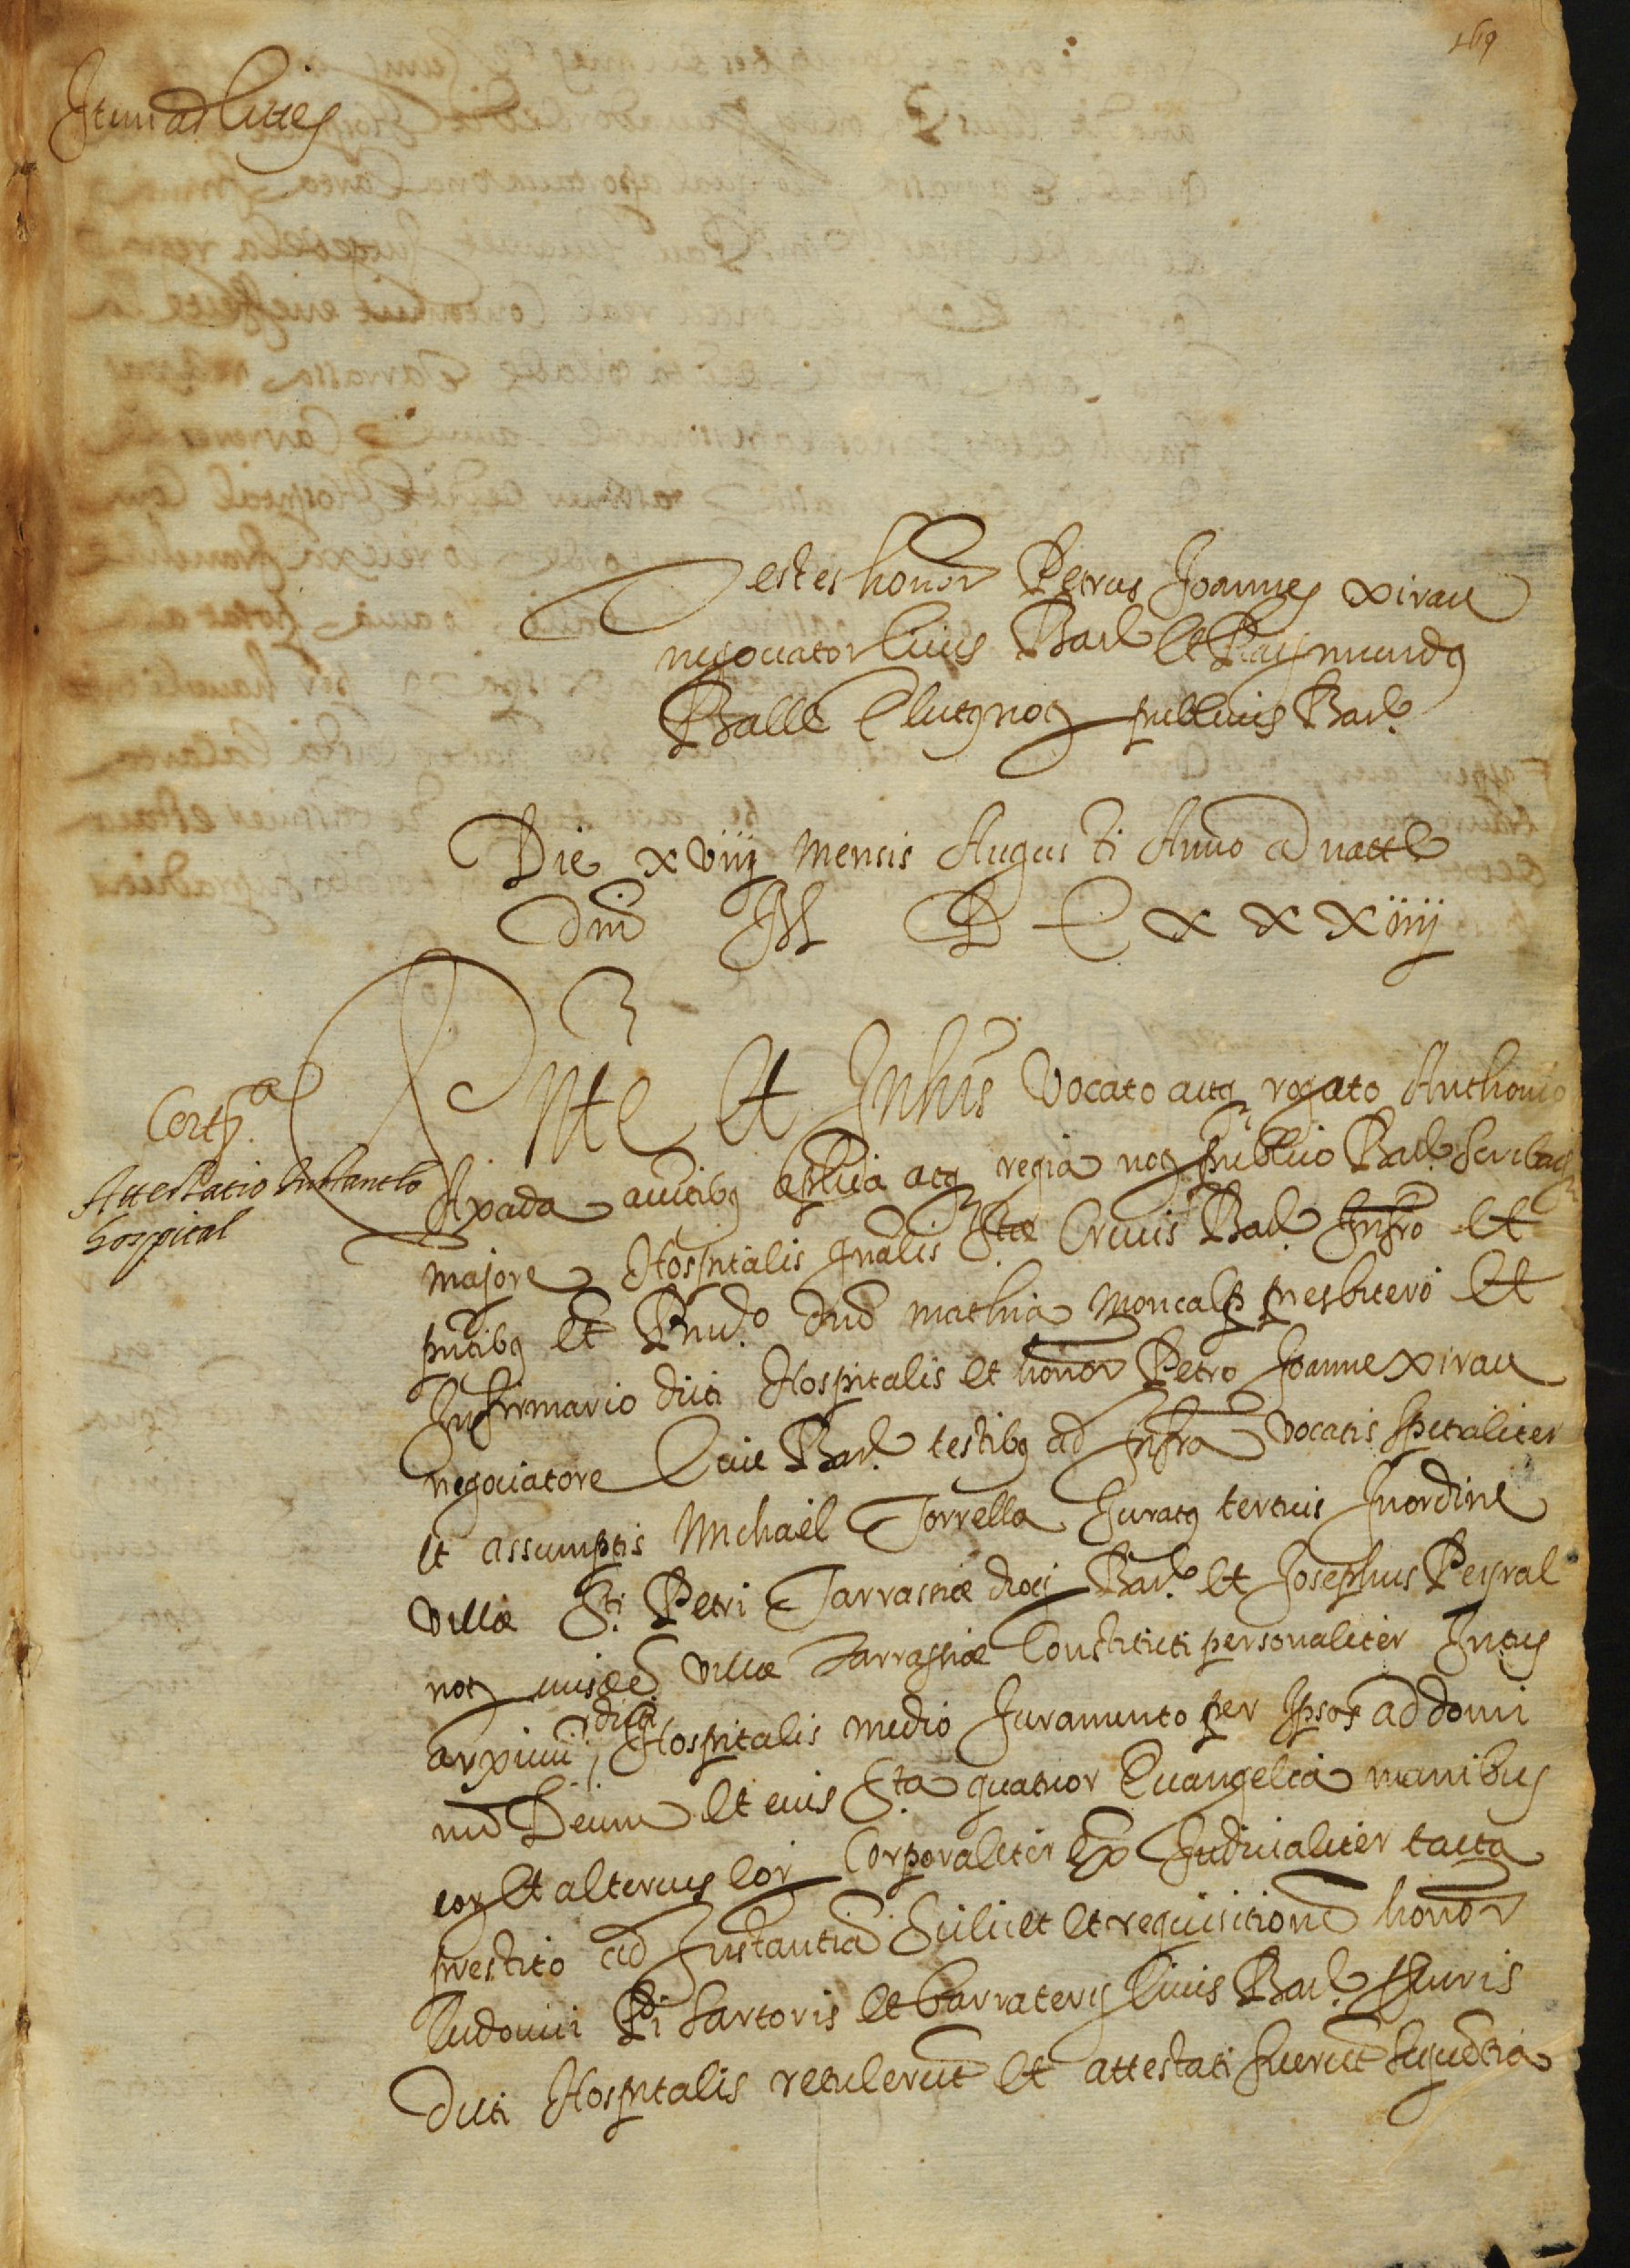 169
Item ad lites
Testes honor Petrus Joannes xirau
negociator Civis Barl et Raymundus
Balle Clutg not publicus Barl.
Die xviiij mensis Augusti Anno a natte
Dni M DC x x x iiij
Certf.a
Attestatio Instancto
hospital
Nte et Inhus Vocato atq rogato Anthonio
Axada auctibq aplica atq regia not publico Barl. Scriba
majore Hospitalis gnalis Stæ Crucis Barl. Infro et
pntibq et Rndo dno mathia Moncalp presbitero et
Infirmario dicti Hospitalis et honor Petro Joanne xirau
negociatore Cive Barl. testibq ad Infra vocatis spetialiter
et assumptis Michael Torrella Juratq tertius Inordine
villæ Sti. Petri Tarrassiæ diocs Barl. et Josephus Peyral
not eiusdem villæ Tarrassiæ Constituti personaliter Intus
arxivu dicti Hospitalis medio Juramento per Ipsos ad domi
nu Deum et eius Sta quatuor Evangelia manibus
eor et alterius eor Corporaliter Ex Judicialiter tacta
prestito ad Instantia Scilicet et requisitione honor
Ludovici Pi Sartoris et barraterij Civis Barl. Juris
dicti Hospitalis retulerut et attestati fuerut sequetia